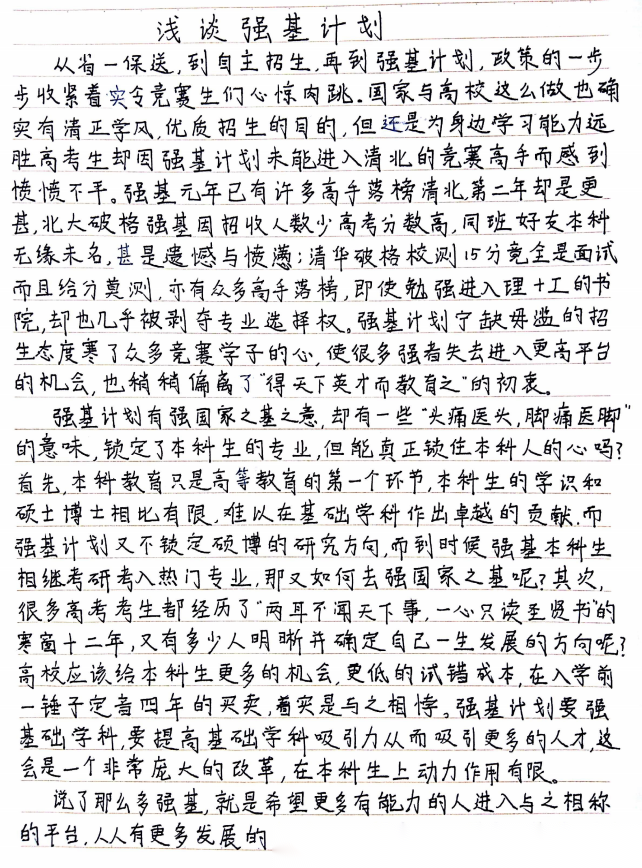 浅谈强基计划
从省一保送,到自主招生,再到强基计划,政策的一步
步收紧着实令竞赛生们心惊肉跳。国家与高校这么做也确
实有清正学风,优质招生的目的,但还是为身边学习能力远
胜高考生却因强基计划未能进入清北的竞赛高手而感到
愤愤不平。强基元年已有许多高手落榜清北,第二年却是更
甚,北大破格强基因招收人数少高考分数高,同班好友本科
无缘未名,甚是遗憾与愤懑;清华破格校测15分竟全是面试
而且给分莫测,亦有众多高手落榜,即使勉强进入理+工的书
院,却也几乎被剥夺专业选择权。强基计划宁缺毋滥的招
生态度寒了众多竞赛学子的心,使很多强者失去进入更高平台
的机会,也稍稍偏离了"得天下英才而教育之"的初衷。
强基计划有强国家之基之意,却有一些"头痛医头,脚痛医脚"
的意味,锁定了本科生的专业,但能真正锁住本科人的心吗?
首先,本科教育只是高等教育的第一个环节,本科生的学识和
硕士博士相比有限,难以在基础学科作出卓越的贡献.而
强基计划又不锁定硕博的研究方向,而到时候强基本科生
相继考研考入热门专业,那又如何去强国家之基呢?其次,
很多高考考生都经历了"两耳不闻天下事,一心只读圣贤书"的
寒窗十二年,又有多少人明晰并确定自己一生发展的方向呢?
高校应该给本科生更多的机会,更低的试错成本,在入学前
一锤子定音四年的买卖,着实是与之相悖。强基计划要强
基础学科,要提高基础学科吸引力从而吸引更多的人才,这
会是一个非常庞大的改革,在本科生上动力作用有限。
说了那么多强基,就是希望更多有能力的人进入与之相称
的平台,人人有更多发展的